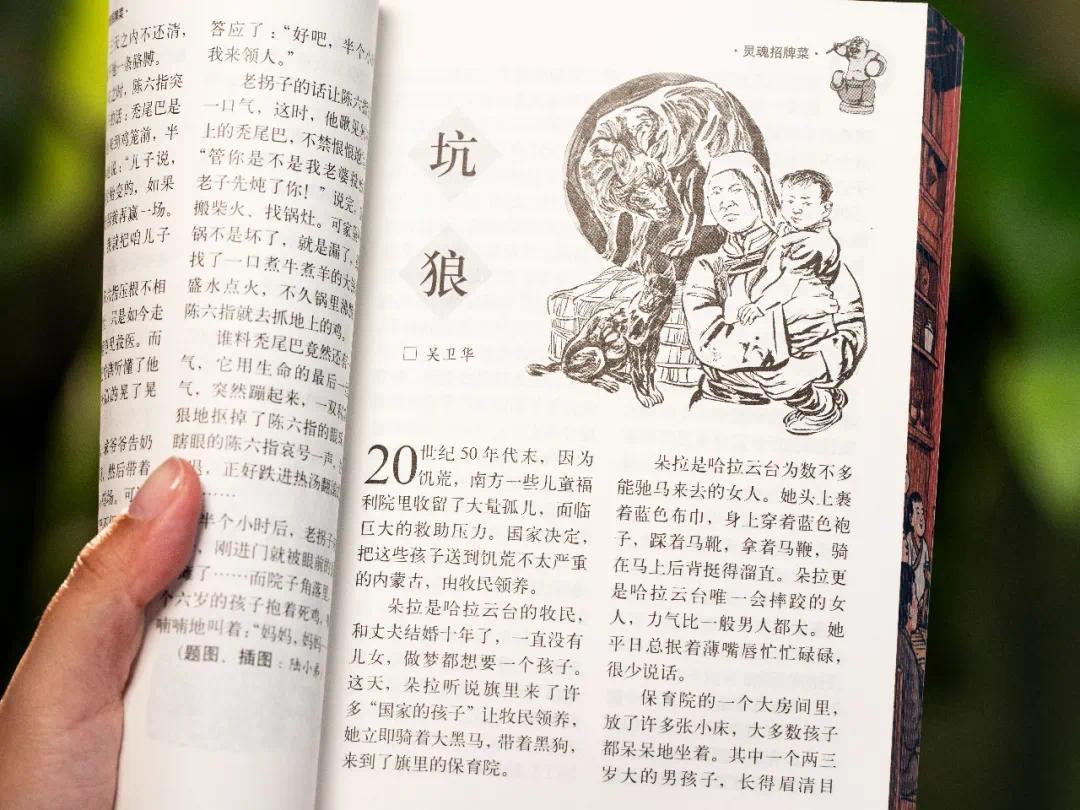 天之内不还清，
他一条胳膊。
之时，陈六指突
话：秃尾巴是
到鸡笼前，半
“儿子说，
变的，如果
再赢一场。
就把咱儿子
六指压根不相
只是如今走
投医。而
听懂了他
的晃了晃
爷爷告奶
，然后带着
答应了：“好吧，半个小
我来领人。”
老拐子的话让陈六指
一口气，这时，他瞅见
上的秃尾巴，不禁恨恨地
“管你是不是我老婆投
老子先炖了你！”说完，
搬柴火、找锅灶。可家
锅不是坏了，就是漏了，
找了一口煮牛煮羊的大
盛水点火，不久锅里沸
陈六指就去抓地上的鸡。
谁料秃尾巴竟然还
气，它用生命的最后一
气，突然蹦起来，一双
狠地抠掉了陈六指的眼
瞎眼的陈六指哀号一声，
，正好跌进热汤翻滚
……
半个小时后，老拐子
，刚进门就被眼前的
了……而院子角落里
个六岁的孩子抱着死鸡，
喃喃地叫着：“妈妈，妈妈
（题图、插图：陆小弟
·灵魂招牌菜·
坑
狼
□ 吴卫华
20世纪50年代末，因为
饥荒，南方一些儿童福
利院里收留了大量孤儿，面临
巨大的救助压力。国家决定，
把这些孩子送到饥荒不太严重
的内蒙古，由牧民领养。
朵拉是哈拉云台的牧民，
和丈夫结婚十年了，一直没有
儿女，做梦都想要一个孩子。
这天，朵拉听说旗里来了许
多“国家的孩子”让牧民领养，
她立即骑着大黑马，带着黑狗，
来到了旗里的保育院。
朵拉是哈拉云台为数不多
能驰马来去的女人。她头上裹
着蓝色布巾，身上穿着蓝色袍
子，踩着马靴，拿着马鞭，骑
在马上后背挺得溜直。朵拉更
是哈拉云台唯一会摔跤的女
人，力气比一般男人都大。她
平日总抿着薄嘴唇忙忙碌碌，
很少说话。
保育院的一个大房间里，
放了许多张小床，大多数孩子
都呆呆地坐着。其中一个两三
岁大的男孩子，长得眉清目